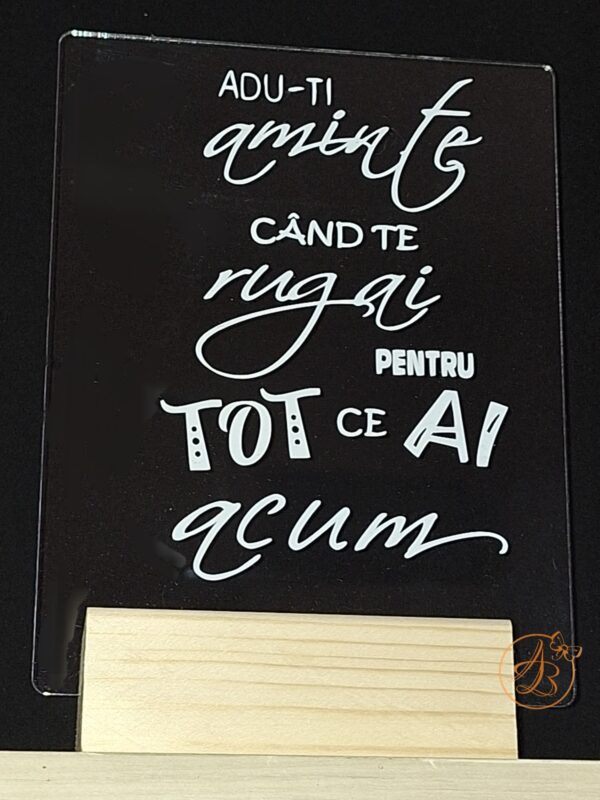 ADU-TI
aminte
CÂND TE
rugai
PENTRU
TOT CE AI
acum
AB